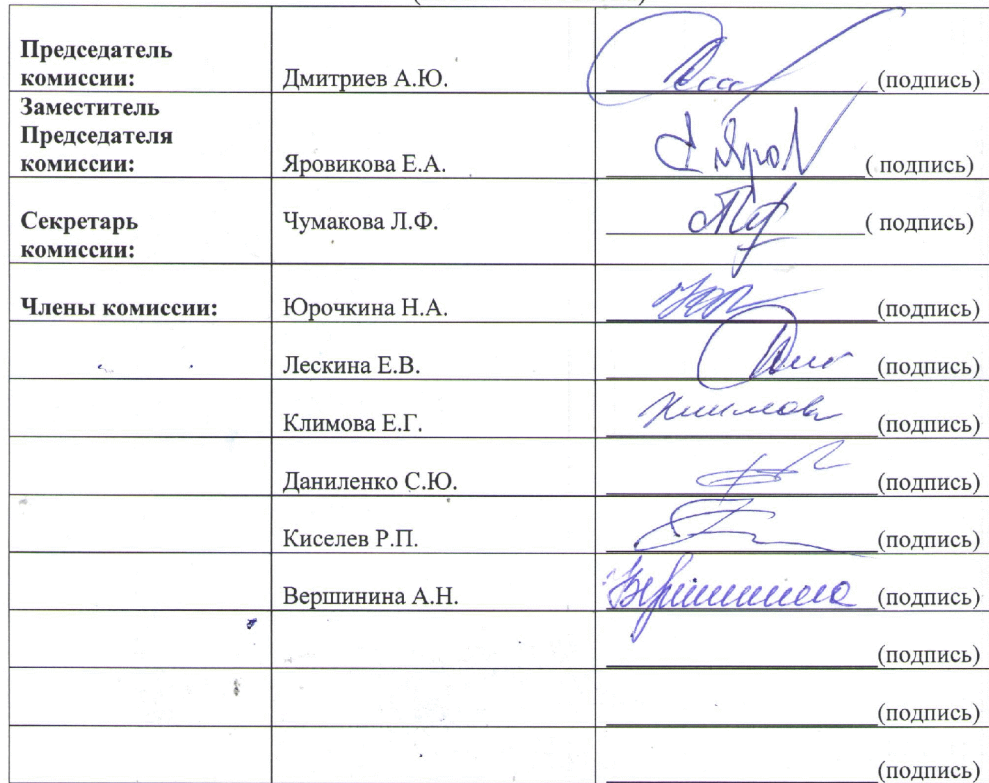 Председатель
комиссии:
Дмитриев А.Ю.
(подпись)
Заместитель
Председателя
комиссии:
Яровикова Е.А.
( подпись)
Секретарь
комиссии:
Чумакова Л.Ф.
( подпись)
Члены комиссии:
Юрочкина Н.А.
(подпись)
Лескина Е.В.
(подпись)
Климова Е.Г.
Климова
(подпись)
Даниленко С.Ю.
(подпись)
Киселев Р.П.
(подпись)
Вершинина А.Н.
Вершинина
(подпись)
(подпись)
(подпись)
(подпись)